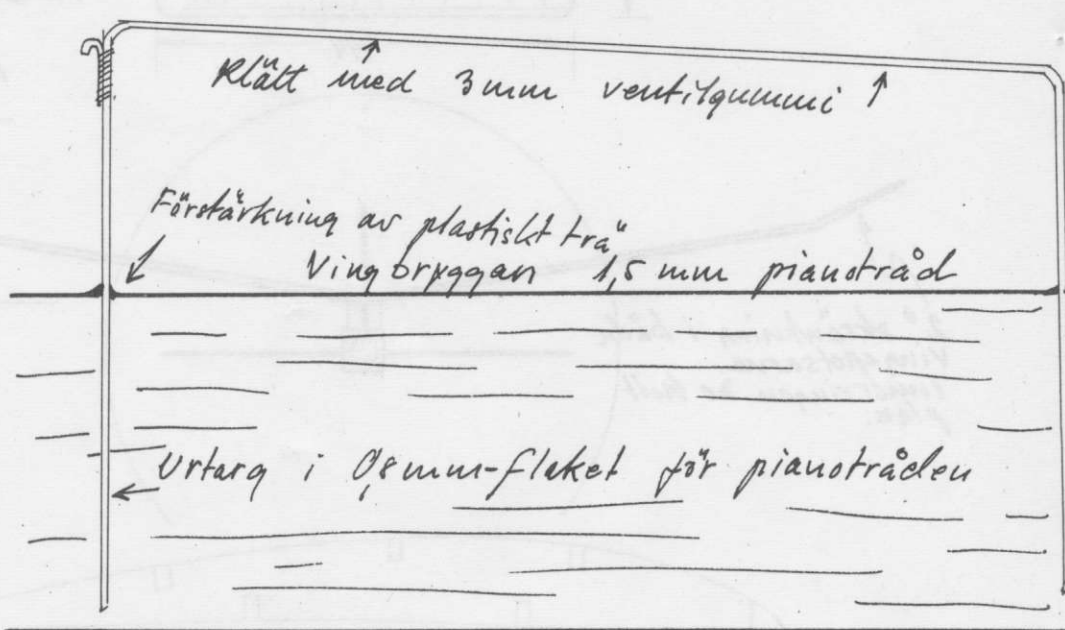 Klätt med 3mm ventilgummi
Förstärkning av plastiskt trä
Vingbryggan 1,5 mm pianotråd
Urtag i 0,8mm-flaket för pianotråden